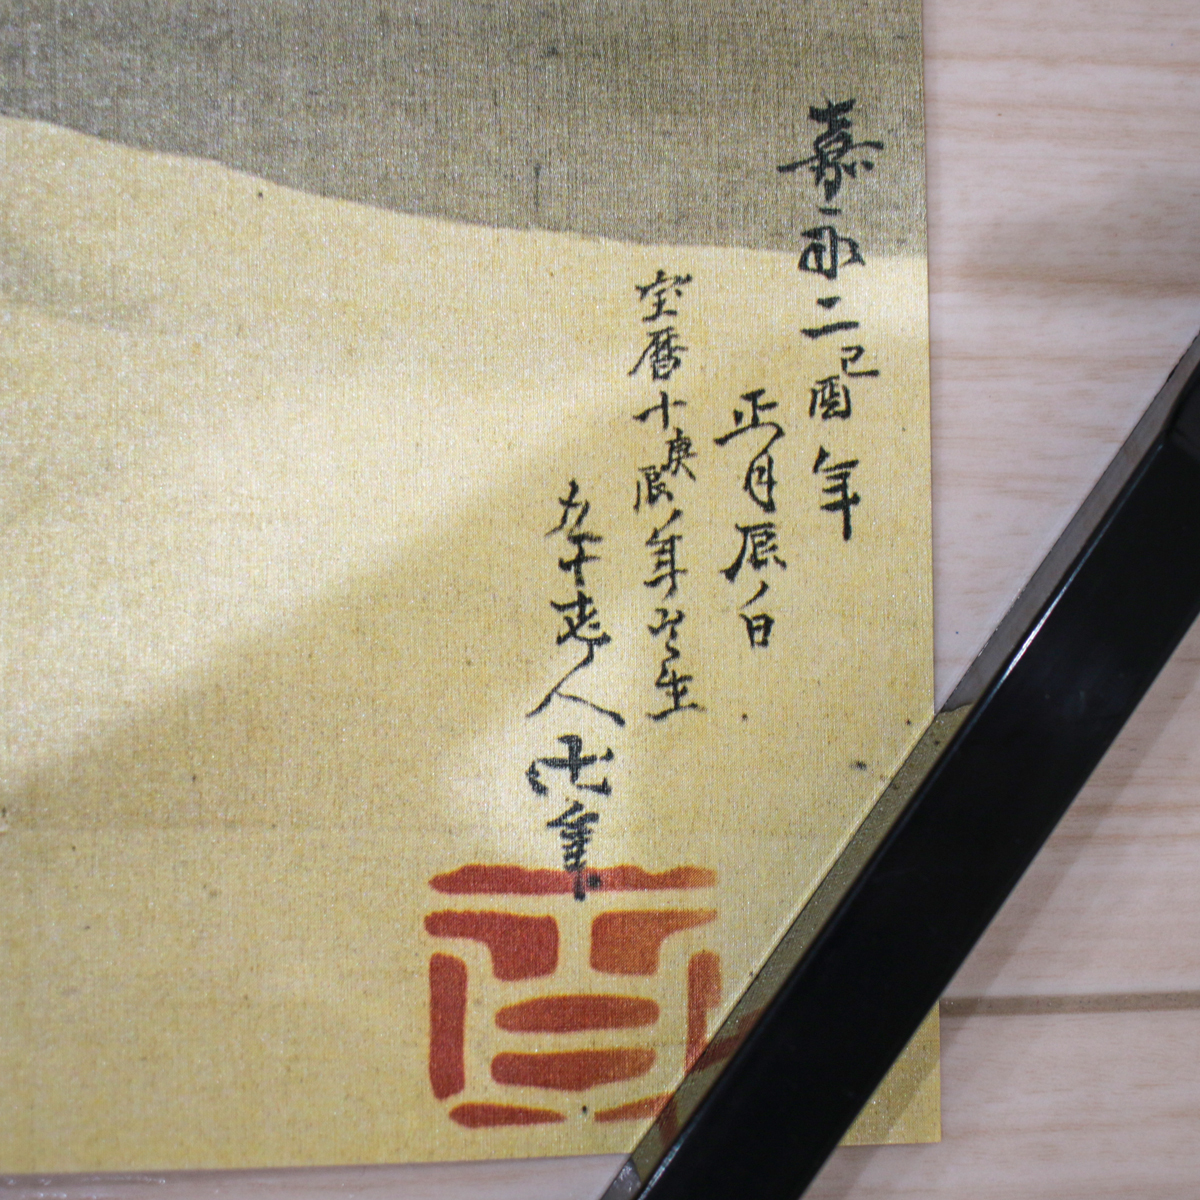 嘉永二己酉年
正月辰ノ日
宝暦十庚辰ノ年出生
九十老人卍筆
百